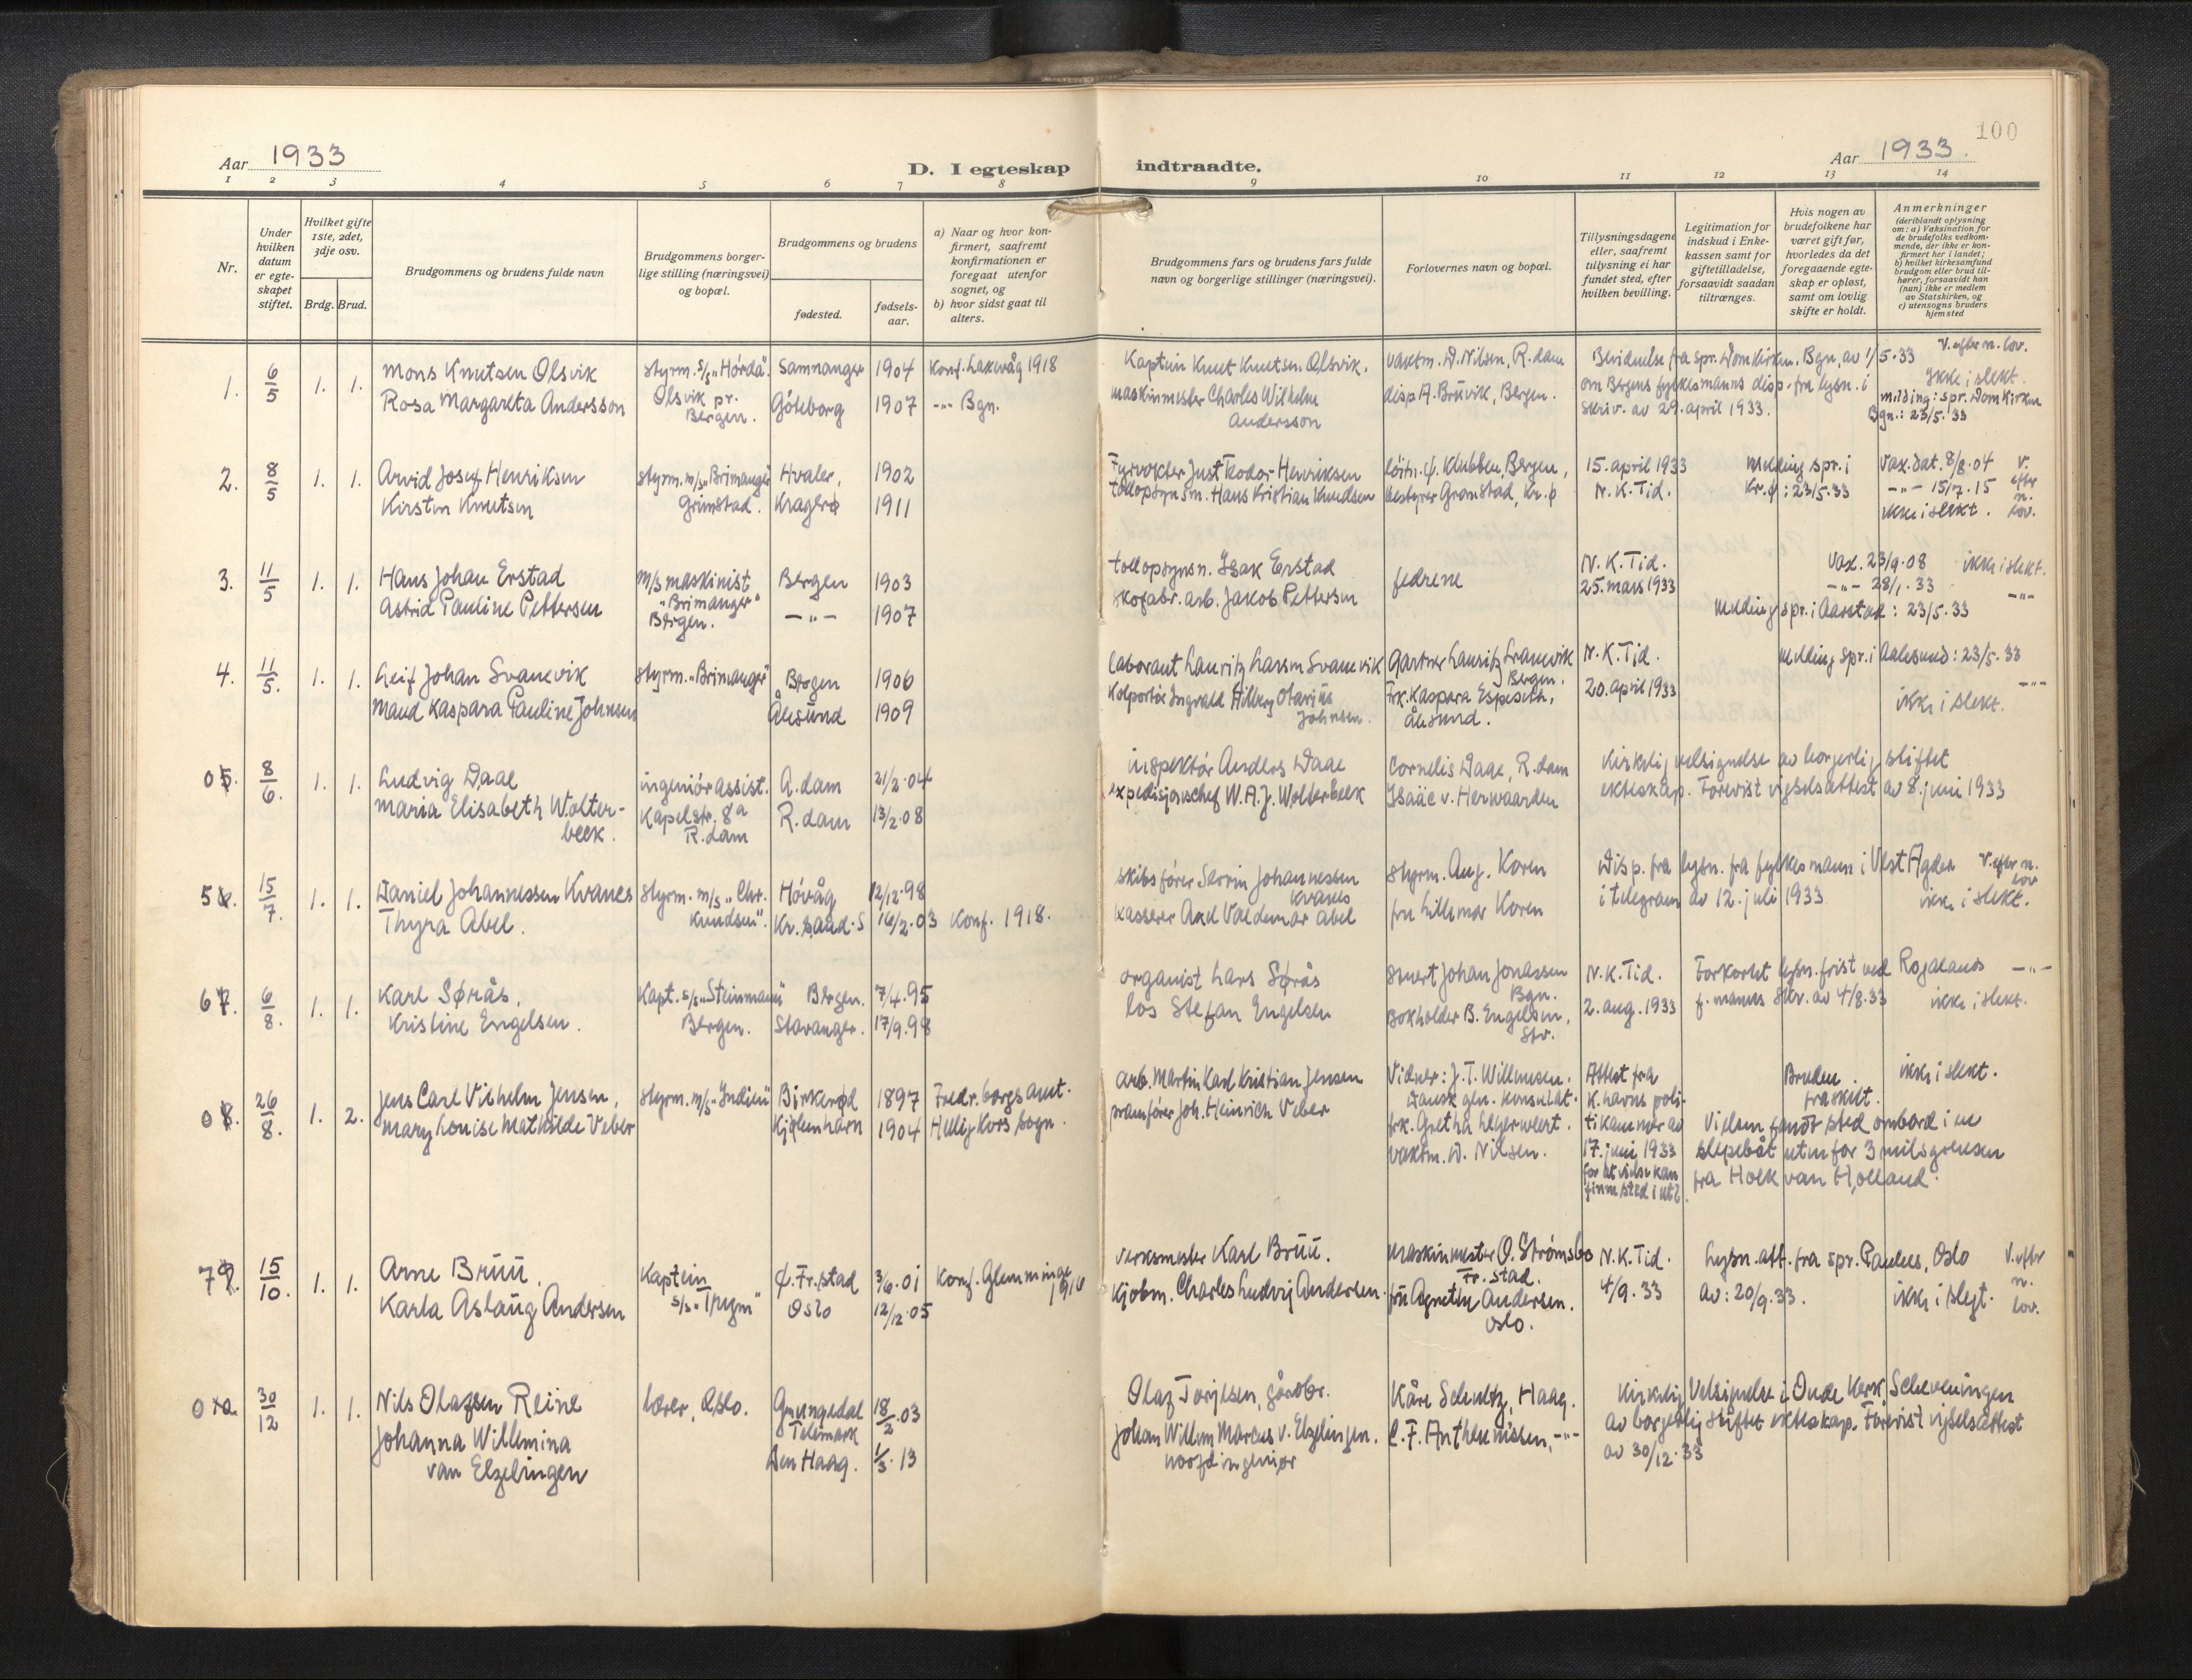 100
Aar 1933
D. I egteskap indtraadte.
Aar 1933.
1 2 3 4 5 6 7 8 9 10 11 12 13 14
Nr.
Under hvilken datum er egteskapet stiftet.
Hvilket gifte 1ste, 2det, 3dje osv.
Brdg. Brud.
Brudgommens og brudens fulde navn
Brudgommens borger-
lige stilling (næringsvei)
og bopæl.
Brudgommens og brudens
fødested.
fødsels-
aar.
a) Naar og hvor kon-
firmert, saafremt
konfirmationen er
foregaat utenfor
sognet, og
b) hvor sidst gaat til
alters.
Brudgommens fars og brudens fars fulde
navn og borgerlige stillinger (næringsvei).
Forlovernes navn og bopæl.
Tillysningsdagene
eller, saafremt
tillysning ei har
fundet sted, efter
hvilken bevilling.
Legitimation for
indskud i Enke-
kassen samt for
giftetilladelse,
forsaavidt saadan
tiltrænges.
Hvis nogen av
brudefolkene har
været gift før,
hvorledes da det
foregaaende egte-
skap er opløst,
samt om lovlig
skifte er holdt.
Anmerkninger
(deriblandt oplysning
om: a) Vaksination for
de brudefolks vedkom-
mende, der ikke er kon-
firmert her i landet;
b) hvilket kirkesamfund
brudgom eller brud til-
hører, forsaavidt han
(hun) ikke er medlem
av Statskirken, og
c) utensogns bruders
hjemsted
1. 6/5 1. 1. Mons Knutsen Olsvik styrm. s/s "Hörda". Samnanger 1904 Konf. Laksvåg 1918
Rosa Margareta Andersson Olsvik pr. Bergen. Göteborg 1907 -"- Bgn.
Kaptein Knut Knutsen Olsvik. vaktm. D. Nilsen, R.dam Bevidnelse fra spr. Domkirken. Bgn, av 1/5.33 V. efter n. lov.
maskinmester Charles Wilhelm Andersson disp A. Brüvik, Bergen. om Bergens fylkesmanns disp. fra lysn. i skriv. av 29. april 1933. Ikke i slekt.
melding: spr. Domkirken
Bgn.: 23/5.33
2. 8/5 1. 1. Arvid Josef Henriksen styrm. m/s "Brimanger" Hvaler, 1902
Kirsten Knutsen Grimstad. Kragerø 1911
Fyrvokter Just Teodor Henriksen löitn. C. Klubben, Bergen, 15. april 1933 melding spr. i Vax. dat. 8/8.04 V. efter n. lov.
tollopsynsm. Hans Kristian Knudsen bestyrer Gromstad, Kr.ø N.K. Tid. Kr.ø : 23/5.33 -"- 15/7.15
ikke i slekt.
3. 11/5 1. 1. Hans Johan Erstad m/s maskinist Bergen 1903
Astrid Pauline Pettersen "Brimanger" Bergen. -"- 1907
tollopsynsn. Isak Erstad fedrene N.K. Tid. Vax. 23/9.08 ikke i slekt.
skofabr. arb. Jakob Pettersen 25. mars 1933 -"- 28/1.33 -"-
melding spr. i Aarstad : 23/5.33
4. 11/5. 1. 1. Leif Johan Svanevik styrm. "Brimanger" Bergen 1906
Maud Kaspara Pauline Johnsen Ålesund 1909
laborant Lauritz Larsen Svanevik Gartner Lauritz Svanevik Bergen. N.K. Tid. melding spr. i Aalesund : 23/5.33
Kolportör Ingvald Hilberg Otarius Johnsen. Frk. Kaspara Espeseth, Ålesund. 20. april 1933 -"-
ikke i slekt.
05. 8/6. 1. 1. Ludvig Daae ingeniör assist. A.dam 21/2.04
Maria Elisabeth Wolter-
beek. Kapelstr. 8a R.dam R.dam 13/2.08
inspektör Anders Daae Cornelis Daae, R.dam Kirkelig velsignelse av borgerlig stiftet
expedisjonschef W.A.J. Wolterbeek Isaäc v. Herwaarden ekteskap. Forevist vigselsattest av 8. juni 1933
5 15/7. 1. 1. Daniel Johannessen Kvanes styrm. m/s "Chr. Knudsen". Hövåg 12/12.98
Thyra Abel. Kr.sand.S 16/2.03 Konf. 1918.
skibsförer Severin Johannessen Kvanes styrm. Aug. Koren Disp. fra lysn. fra fylkesmann i Vest Agder V. efter n. lov
kasserer Axel Valdemar Abel fru Lillemor Koren i telegram av 12. juli 1933 ikke i slekt.
67. 6/8. 1. 1. Karl Sørås. Kapt. s/s "Steinmann" Bergen. 7/4.95
Kristine Engelsen. Bergen. Stavanger. 17/9.98
organist Lars Sørås Sivert Johan Jonassen Bgn. N.K. Tid. Forkortet lysn. frist ved Rogalands -"-
los Stefan Engelsen Bokholder B. Engelsen, Stv. 2. aug. 1933 f. manns skr. av 4/8.33 ikke i slekt.
08. 26/8. 1. 2. Jens Carl Vilhelm Jensen, styrm. m/s "Indien" Birkerød 1897 Fredr. borgs amt.
Mary Louise Mathilde Veber Kjøbenhavn 1904 Hellig Kors sogn.
arb. Martin Karl Kristian Jensen Vidner: J.T. Willemsen. Attest fra Bruden fraskilt. ikke i slekt.
pramförer Joh. Heinrich Veber Dansk gen. konsulat. K.havns poli-
frk. Gretha Leyerweert. tikammer av Vielsen fandt sted ombord i en
vaktm. D. Nilsen. 17. juni 1933 slepebåt utenfor 3 milsgrensen
for at vielse kan finne sted i utl. fra Hoek van Holland.
79. 15/10. 1. 1. Arne Brüü. Kaptein Ö. Fr.stad 3/6.01 Konf. Glemminge 1916
Karla Aslaug Andersen s/s "Trym" Oslo 12/12.05
verksmester Karl Brüü. Maskinmester O. Strømsbo Fr.stad. N.K. Tid. Lysn. att. fra spr. Paulus, Oslo V. efter n. lov.
Kjöbm. Charles Ludvig Andersen. frü Agnethe Andersen. Oslo. 4/9.33 av: 20/9.33. ikke i slegt.
010. 30/12 1. 1. Nils Olafsen Reine lærer, Oslo. Grungedal Telemark 18/2.03
Johanna Willemina
van Elzelingen Den Haag. 1/3.13
Olaf Torjesen, gårdbr. Kåre Schultz, Haag. Kirkelig Velsignelse i Oude Kerk, Scheveningen
Johan Willem Marcus v. Elzelingen. C.F. Antheunissen, -"- av borgerlig stiftet ekteskap. Forevist vigselsattest
hoofdingeniør av 30/12.33